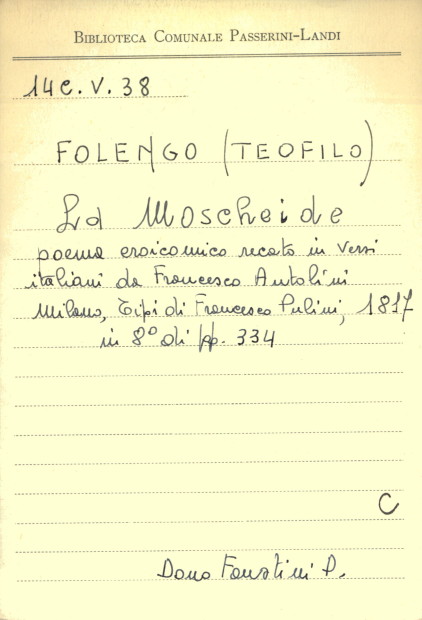 BIBLIOTECA COMUNALE PASSERINI-LANDI
14C.V.38
FOLENGO (TEOFILO)
La Moscheide
poema eroicomico recato in versi
italiani da Francesco Antolini
Milano, Tipi di Francesco Pulini, 1817
in 8° di pp. 334
C
Dono Faustini P.